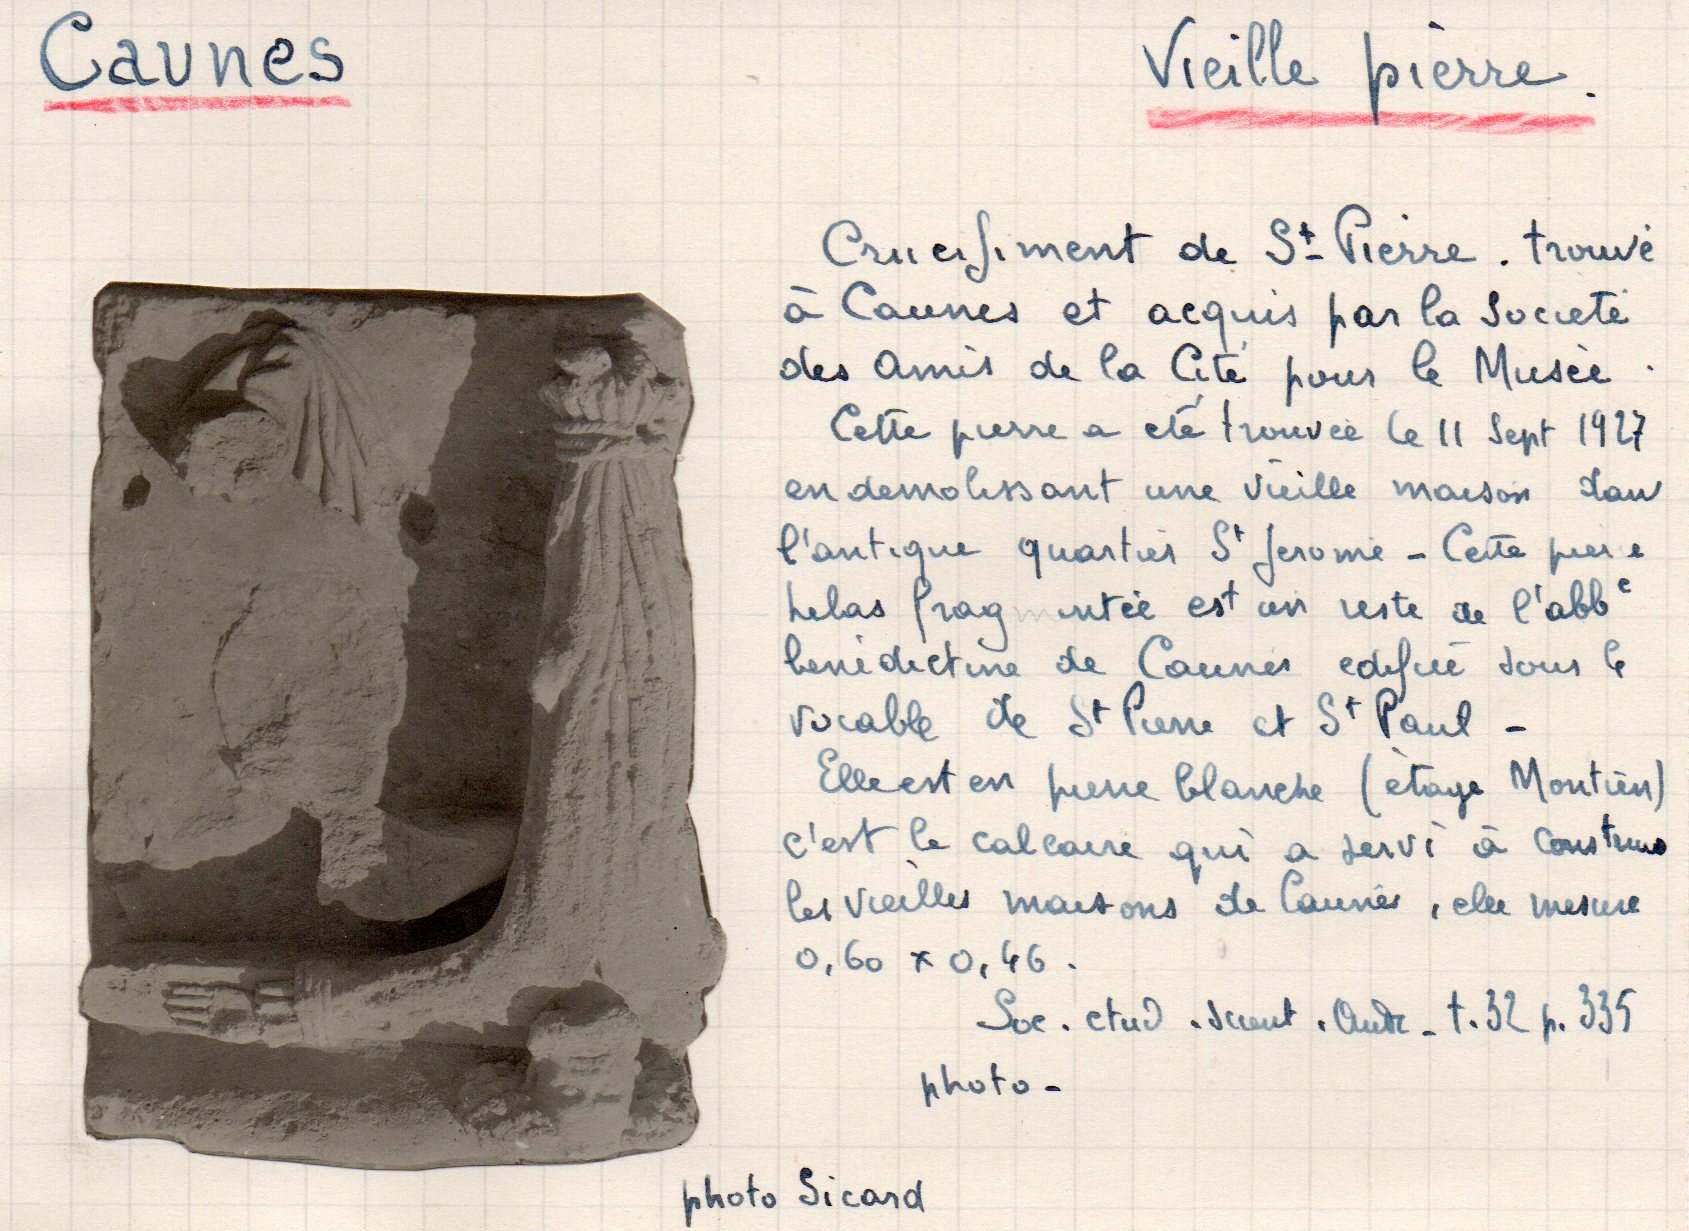 Caunes
Vieille pierre.
Crucifiment de St Pierre. trouvé
à Caunes et acquis par la Societé
des Amis de la Cité pour le Musée.
Cette pierre a eté trouvée le 11 Sept 1927
en demolissant une vieille maison dans
l'antique quartier St Jerome - Cette pierre
helas fragmentée est un reste de l'abbe
benédictine de Caunes edifié sous le
vocable de St Pierre et St Paul -
Elle est en pierre blanche (étage Montien)
c'est le calcaire qui a servi à construire
les vieilles maisons de Caunes, elle mesure
0,60 x 0,46.
Soc. etud. scient. Aude - t. 32 p. 335
photo -
photo Sicard